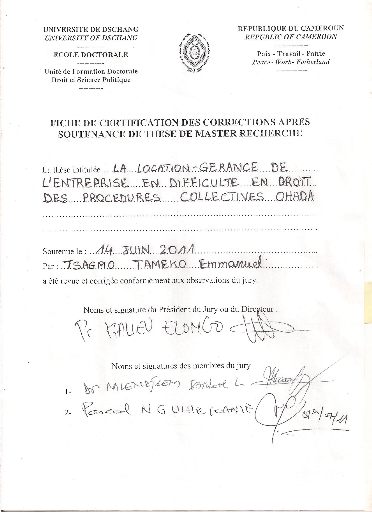 UNIVERSITE DE DSCHANG
UNIVERSITY OF DSCHANG
ECOLE DOCTORALE
Unité de Formation Doctorale
Droit et Science Politique
REPUBLIQUE DU CAMEROUN
REPUBLIC OF CAMEROON
Paix - Travail - Patrie
Peace - Work - Fatherland
FICHE DE CERTIFICATION DES CORRECTIONS APRÈS
SOUTENANCE DE THESE DE MASTER RECHERCHE
La thèse intitulée LA LOCATION-GERANCE DE
L'ENTREPRISE EN DIFFICULTE EN DROIT
DES PROCEDURES COLLECTIVES OHADA
Soutenue le : 14 JUIN 2011
Par : TSAGMO TAMEKO Emmanuel
a été revue et corrigée conformément aux observations du jury.
Noms et signature du Président du Jury ou du Directeur :
Pr KALIEU ELONGO
Noms et signatures des membres du jury
1.
2.